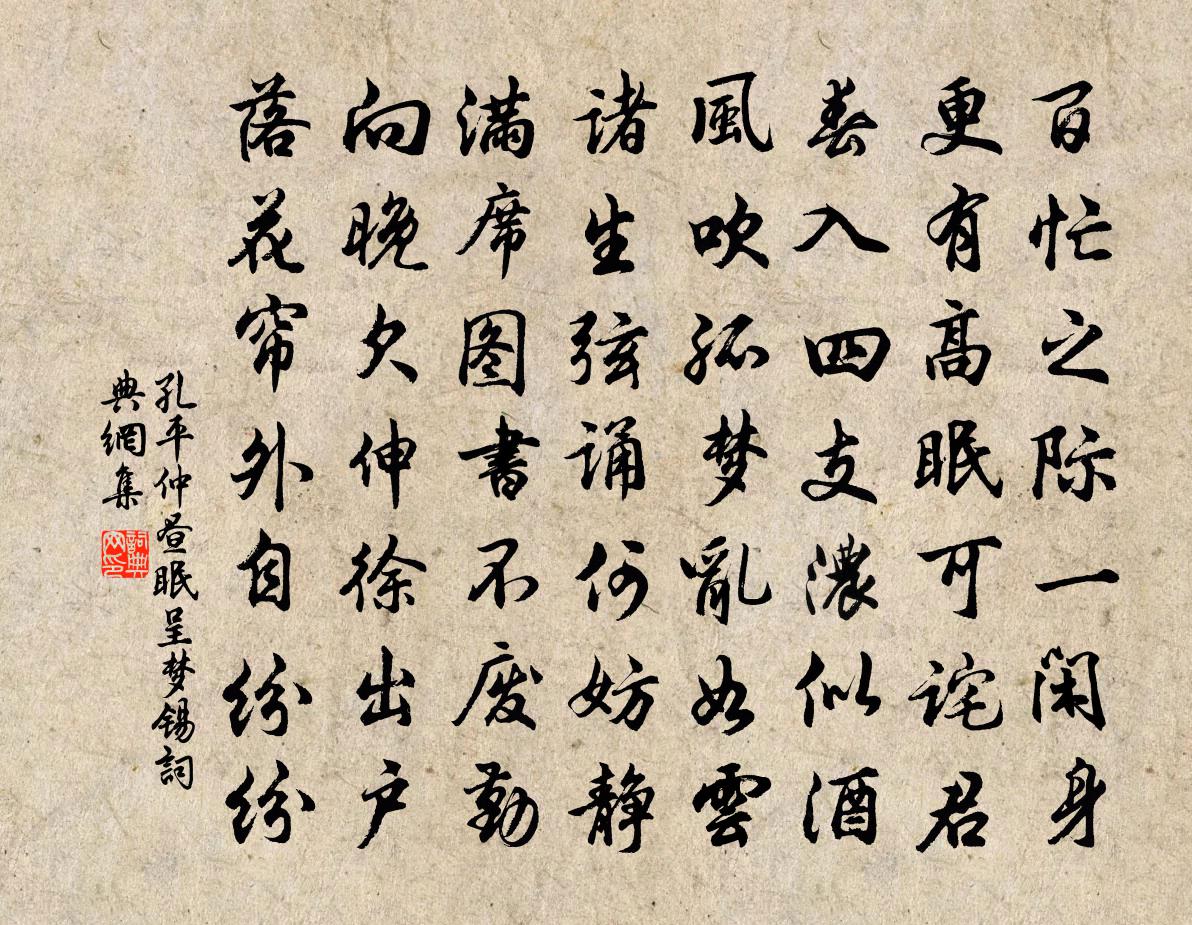 百忙之际一闲身
更有高眠可诧君
春入四支濃似酒
風吹孤梦亂如雲
诸生弦诵何妨静
满席图書不废勤
向晚欠伸徐出户
落花帘外自纷纷
孔平仲昼眠呈梦锡詞
典網集
詞典
网印